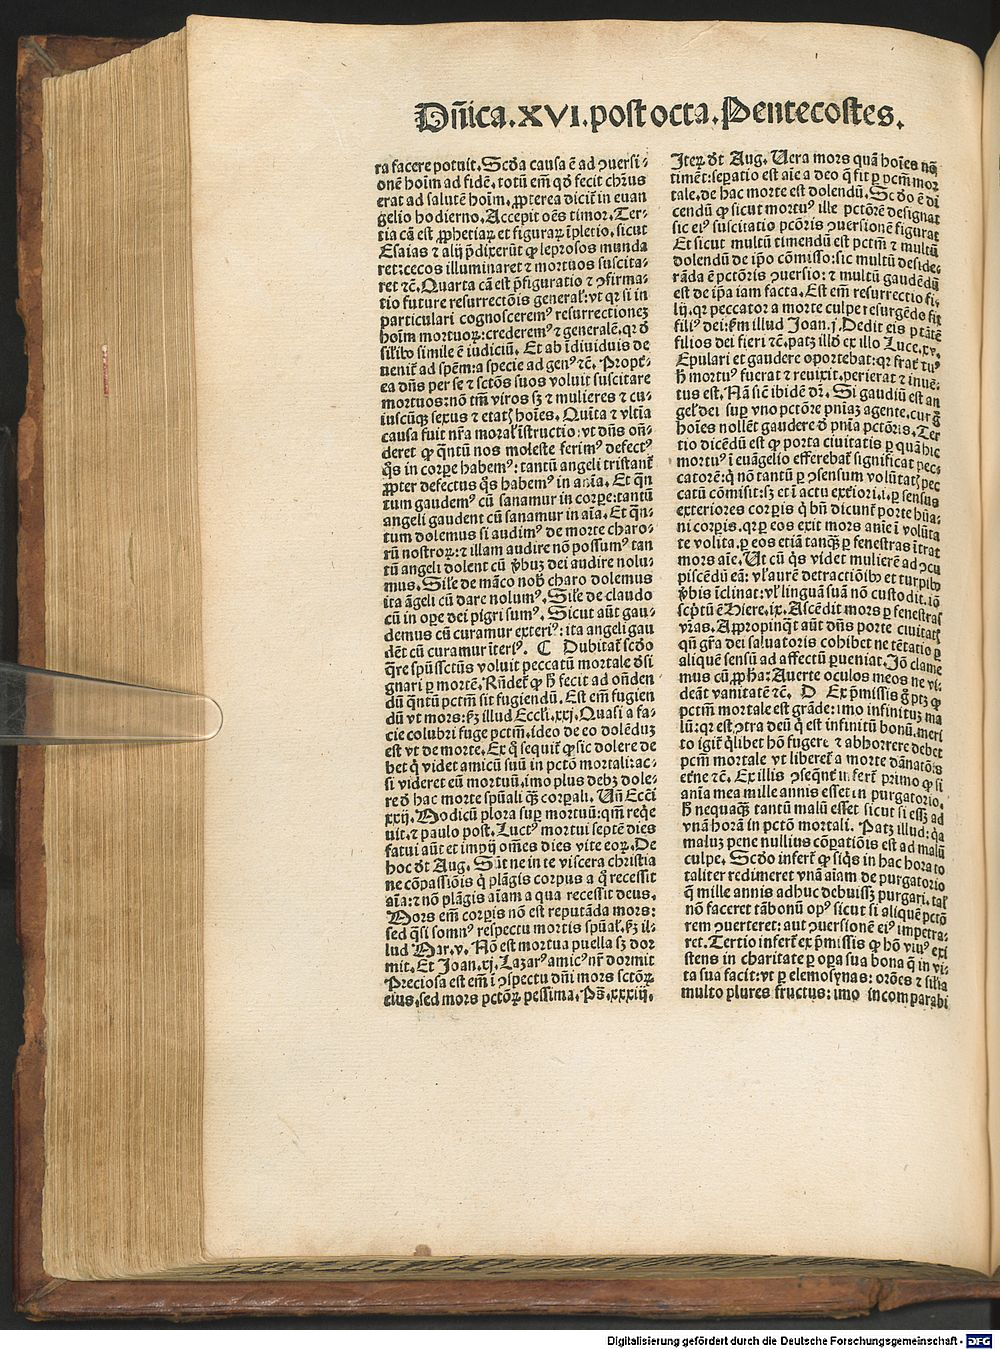 Dñica.XVI.post octa.Pentecostes.
ra facere potuit. Scďa causa ē ad ꝯuersi-
onē hoīm ad fidē. totū em̄ qď fecit chr̄us
erat ad salutē hoīm. ꝓpterea dicit̃ in euan
gelio hodierno. Accepit oēs timor. Ter-
tia cā est ꝓphetiaꝝ et figuraꝝ īpletio. sicut
Esaias ⁊ alij p̄dixerūt ꝙ leprosos munda
ret: cecos illuminaret ⁊ mortuos suscita-
ret ⁊c̄. Quarta cā est p̄figuratio ⁊ ꝯfirma-
tio future resurrectōis general̓: vt qꝛ si in
particulari cognoscerem⁹ resurrectionez
hoīm mortuoꝝ: crederem⁹ ⁊ generalē. qꝛ ď
sil̓ibꝰ simile ē iudiciū. Et ab īdiuiduis de
uenit̃ ad spēm: a specie ad gen⁹ ⁊c̄. Propt̓-
ea dn̄s per se ⁊ sctōs suos voluit suscitare
mortuos: nō tm̄ viros sꝫ ⁊ mulieres ⁊ cu-
iuscūqꝫ sexus ⁊ etatꝭ hoīes. Quīta ⁊ vltīa
causa fuit nr̄a moral̓ īstructio: vt dn̄s on̄-
deret ꝙ qn̄tū nos moleste ferim⁹ defect⁹
q̊s in corpe habem⁹: tantū angeli tristant̃
ꝓpter defectus q̊s habem⁹ in aīa. Et qn̄
tum gaudem⁹ cū sanamur in corpe: tantū
angeli gaudent cū sanamur in aīa. Et qn̄-
tum dolemus si audim⁹ de morte charo-
rū nostroꝝ: ⁊ illam audire nō possum⁹ tan
tū angeli dolent cū ꝟbuꝫ dei audire nolu-
mus. Sil̓e de māco nob̓ charo dolemus
ita āgeli cū dare nolum⁹. Sil̓e de claudo
cū in oꝑe dei pigri sum⁹. Sicut aūt gau-
demus cū curamur exteri⁹: ita angeli gau
dēt cū curamur īteri⁹. C Dubitat̃ scďo
q̄re spūssctūs voluit peccatū mortale ďsi
gnari ꝑ mortē. Rn̄det̃ ꝙ h̓ fecit ad on̄den
dū qn̄tū pctm̄ sit fugiendū. Est em̄ fugien
dū vt mors: ẜm illud Eccl̓i. xxj. Quasi a fa-
cie colubri fuge pctm̄. ideo de eo dolēduꝫ
est vt de morte. Ex q̊ sequit̃ ꝙ sic dolere de
bet q̇ videt amicū suū in pctō mortali: ac-
si videret eū mortuū. imo plus debꝫ dole-
re ď hac morte spūali qꝫ corꝑali. Un̄ Eccl̓i
xxij. Modicū plora suꝑ mortuū: qm̄ reqe
uit. ⁊ paulo post. Luct⁹ mortui septē dies
fatui aūt et impij om̄es dies vite eoꝝ. De
hoc ďt Aug. Sūt ne in te viscera christia
ne cōpassiōis q̇ plāgis corpus a q̊ recessit
aīa: ⁊ nō plāgis aīam a qua recessit deus.
Mors em̄ corꝑis nō est reputāda mors:
sed q̄si somn⁹ respectu mortis spūal̓. ẜꝫ il-
lud Mar. v. Nō est mortua puella sꝫ dor
mit. Et Joan. xj. Lazar⁹ amic⁹ nr̄ dormit
Preciosa est em̄ ī ꝯspectu dn̄i mors sctōꝝ
eius. sed mors pctōꝝ pessima. Ps̄. xxxiij.
Iteꝝ ďt Aug. Uera mors quā hoīes nō
timēt: seꝑatio est aīe a deo q̄ fit ꝑ pcm̄ mor
tale. de hac morte est dolendū. Scďo ē di
cendū ꝙ sicut mortu⁹ ille pctōrē designat
sic ei⁹ suscitatio pcōris ꝯuersionē figurat
Et sicut multū timendū est pctm̄ ⁊ multū
dolendū de ip̄o cōmisso: sic multū deside-
rāda ē pctōris ꝯuersio: ⁊ multū gaudēdū
est de ip̄a iam facta. Est em̄ resurrectio fi-
lij. qꝛ peccator a morte culpe resurgēdo fit
fili⁹ dei: ẜm illud Joan. j. Dedit eis ptātē
filios dei fieri ⁊c̄. patꝫ illď ex illo Luce. xv.
Epulari et gaudere oportebat: qꝛ frat̓ tu⁹
h̓ mortu⁹ fuerat ⁊ reuixit. perierat ⁊ inuē-
tus est. Nā sic̄ ibidē dr̄. Si gaudiū est an
gel̓ dei suꝑ vno pctōre pn̄iaꝫ agente. cur g̊
hoīes nollēt gaudere ď pn̄ia pctōris. Ter
tio dicēdū est ꝙ porta ciuitatis ꝑ quā hic
mortu⁹ ī euāgelio efferebat̃ significat pec
catorē: q̇ nō tantū ꝑ ꝯsensum volūtatꝭ pec
catū cōmisit: sꝫ et ī actu ext̓iori. i. ꝑ sensus
exteriores corꝑis q̇ bn̄ dicunt̃ porte hūa-
ni corꝑis. qꝛ ꝑ eos exit mors aīe ī volūta
te volita. ꝑ eos etiā tanqꝫ ꝑ fenestras ītrat
mors aīe. Ut cū q̇s videt mulierē ad ꝯcu
piscēdū eā: vl̓ aurē detractiōibꝰ et turpibꝰ
ꝟbis īclinat: vl̓ linguā suā nō custodit. iō
scp̄tū ē Hiere. ix. Ascēdit mors ꝑ fenestras
vr̄as. Appropinq̇t aūt dn̄s porte ciuitatꝭ
qn̄ gr̄a dei saluatoris cohibet ne tētatio ꝑ
aliquē sensū ad affectū ꝑueniat. Iō clame
mus cū ꝓp̄ha: Auerte oculos meos ne vi-
deāt vanitatē ⁊c̄. D Ex p̄missis g̊ ptꝫ ꝙ
pctm̄ mortale est grāde: imo infinituꝫ ma
lū: qꝛ est ꝯtra deū q̇ est infinitū bonū. meri
to igit̃ q̇libet hō fugere ⁊ abhorrere debet
pcm̄ mortale vt liberet̃ a morte dānatōis
et̓ne ⁊c̄. Ex illis ꝯseqn̄t̓ infert̃ primo ꝙ si
anīa mea mille annis esset in purgatorio.
h̓ nequaqꝫ tantū malū esset sicut si essꝫ ad
vnā horā in pctō mortali. Patꝫ illud: qꝛ
maluꝫ pene nullius cōꝑatiōis est ad malū
culpe. Scďo infert̃ ꝙ siq̇s in hac hora to
taliter redimeret vnā aīam de purgatorio
q̄ mille annis adhuc debuissꝫ purgari. tal̓
nō faceret tā bonū op⁹ sicut si aliquē pctō
rem ꝯuerteret: aut ꝯuersionē ei⁹ impetra-
ret. Tertio infert̃ ex p̄missis ꝙ hō viu⁹ exi
stens in charitate ꝑ oꝑa sua bona q̄ in vi-
ta sua facit: vt ꝑ elemosynas: orōes ⁊ sil̓ia
multo plures fructus: imo incomparabi
Digitalisierung gefördert durch die Deutsche Forschungsgemeinschaft - DFG